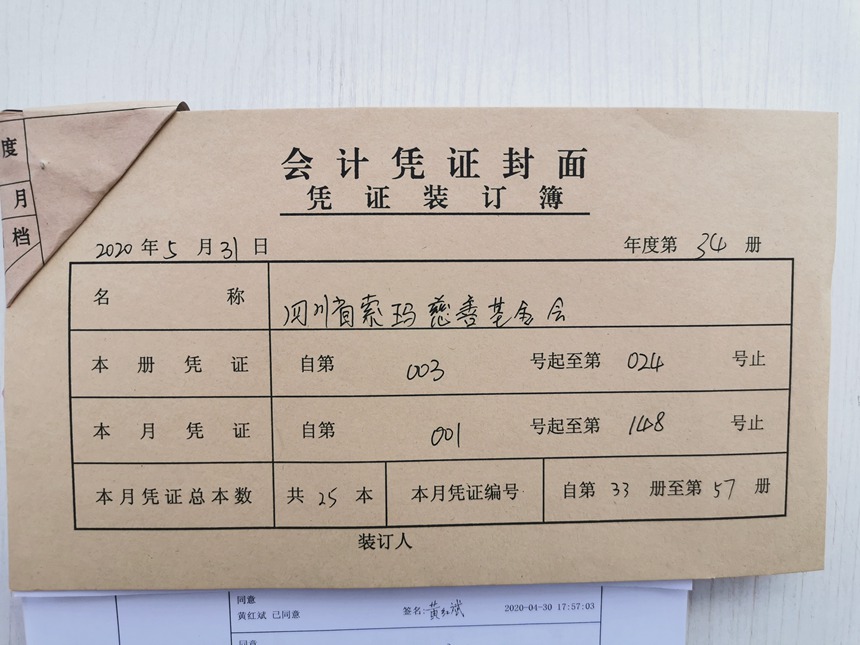 度
月
档
会计凭证封面
凭证装订簿
2020年5月31日 年度第34册
名称 四川省索玛慈善基金会
本册凭证 自第003号起至第024号止
本月凭证 自第001号起至第148号止
本月凭证总本数 共25本 本月凭证编号 自第33册至第57册
装订人
同意
黄红斌 已同意 签名:黄红斌 2020-04-30 17:57:03
同意